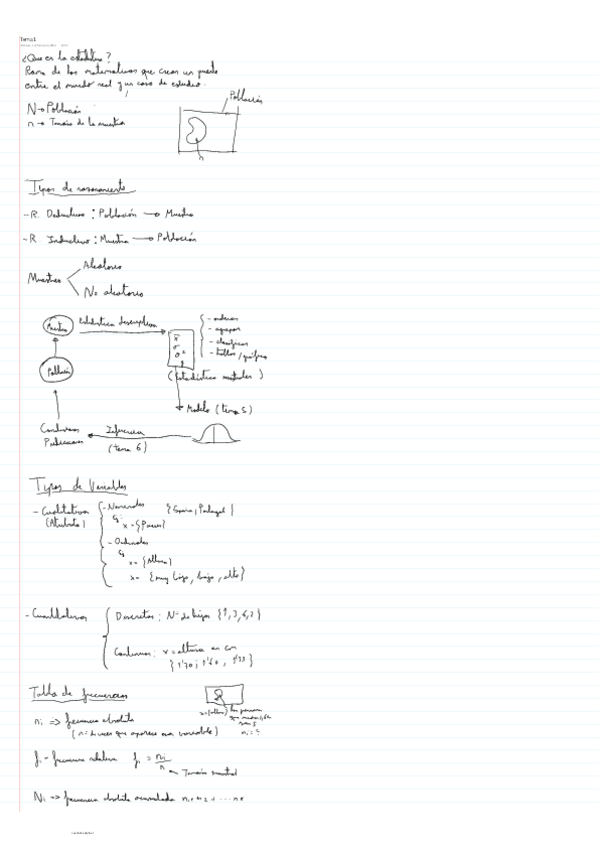 Tema 1
¿Que es la estadística?
Rama de las matemáticas que crean un puente
entre el mundo real y un caso de estudio.
N → Población
n → Tamaño de la muestra
Población
n
Tipos de razonamiento
- R. Deductivo: Población → Muestra
- R Inductivo: Muestra → Población
Muestreo
Aleatorio
No aleatorios
Muestra
Estadística descriptiva
- ordenar
- agrupar
- clasificar
- tablas / gráficos
Población
(Estadísticos muestrales)
Modelo (tema 5)
Conclusiones
Predicciones
Inferencia
(tema 6)
Tipos de Variables
- Cualitativas
(Atributo)
- Nominales {Spain, Portugal}
x = {Países}
- Ordinales
x = {Altura}
x = {muy bajo, bajo, alto}
- Cuantitativas
Discretas: Nº de hijos
Continuas: x = altura en cm
Tabla de frecuencias
ni => frecuencia absoluta
(nº de veces que aparece una variable)
fi - frecuencia relativa fi = ni/n
Tamaño muestral
Ni => frecuencia absoluta acumulada n1+n2+...nx